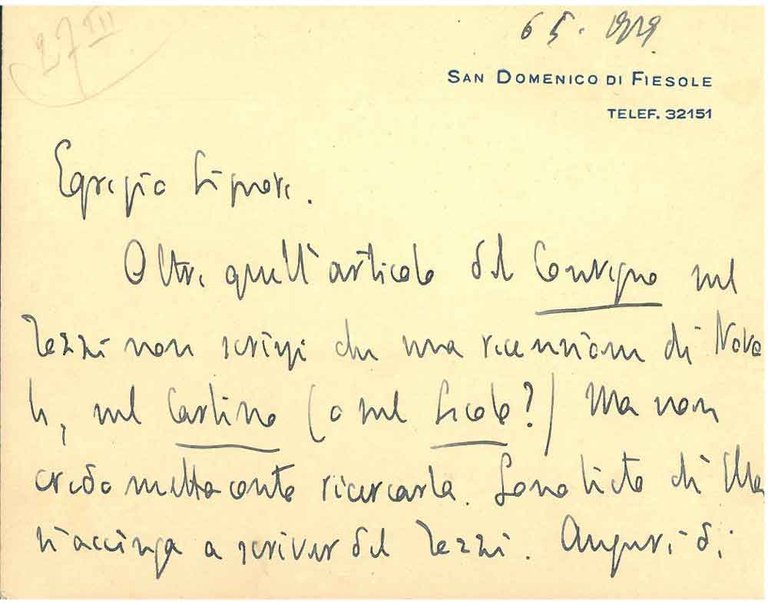 27 III
6 5.
SAN DOMENICO DI FIESOLE
TELEF. 32151
Egregio Signore.
Oltre quell'articolo del Convegno sul
Tozzi non scrissi che una recensione di Nova
le, sul Carlino (o sul Secolo?) Ma non
credo metta conto ricercarla. Sono lieto ch'Ella
s'accinga a scriver del Tozzi. Auguri di